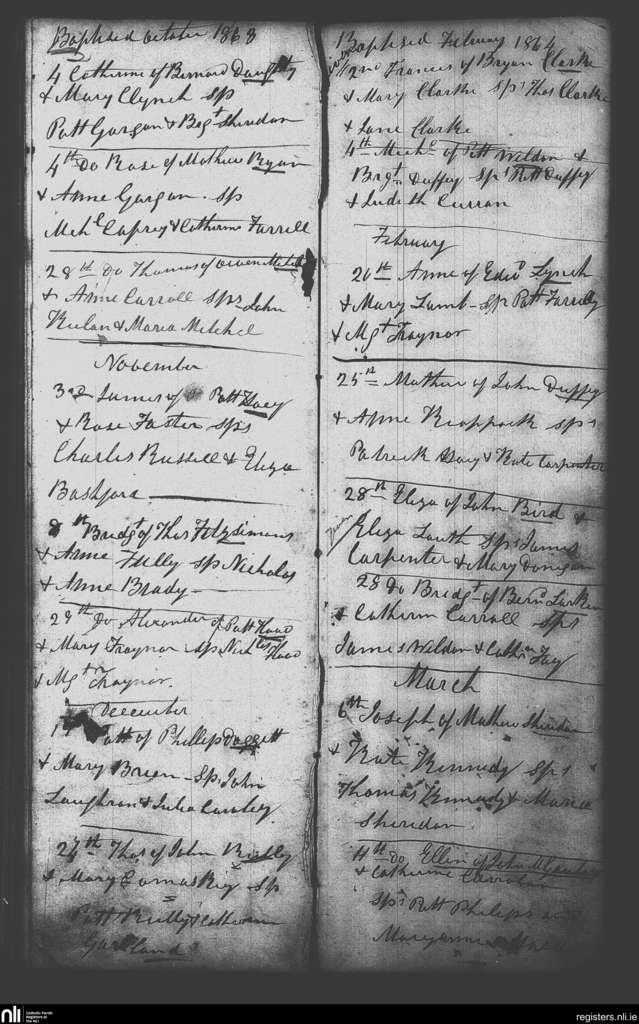 Baptised october 1863
4 Catherine of Bernard
& Mary Clynch sp
Patt Gargan & Bigt Sheridan
4th Do Rose of Mathew Ryan
& Anne Gargan. sp
Mchl Caprey & Catherine Farrell
28th Do Thomas of Owen Mitchel
& Anne Carroll Sps John
Keelan & Maria Mitchel
November
3rd James of Patt Hoey
& Rose Foster sps
Charles Russell & Eliza
Bashford
8th Bridgt of Thos Fitzsimons
& Anne Fully sp Nicholas
& Anne Brady
29th Do Alexander of Patt
& Mary Traynor sp Nichlas
& Mgt Traynor
December
Patt of Phillip Daggett
& Mary Breen - Sp. John
Laughran & Julia
27th Thos of John Reilly
& Mary Comaskey Sp
Patt Reilly & Catherine
Gartland
Baptised February 1864
2nd Frances of Bryan Clarke
& Mary Clarke sps Thos Clarke
& Jane Clarke
4th Michl of Patt Weldon &
Brgt Duffey Sps Patt Duffey
& Judith Curran
February
20th Anne of Edwd Lynch
& Mary Lamb - Sp Patt Farrelly
& Mgt Traynor
25th Mathew of John Duffey
& Anne sps
Patrick Hoey & Kate Carpenter
28th Eliza of John Bird &
Eliza Louth Sps James
Carpenter & Mary Donegan
28 Do Bridgt of Bernd Larken
& Catherin Carroll Sps
James Weldon & Cathrn Fay
March
6th Joseph of Mathew Sheridan
& Kate Kennedy Sps
Thomas Kennedy & Maria
Sheridan
11th Do Ellen of John
& Catherine
Sps Patt Philips and
Maryanne
nli
Catholic Parish
Registers at
the NLI
registers.nli.ie